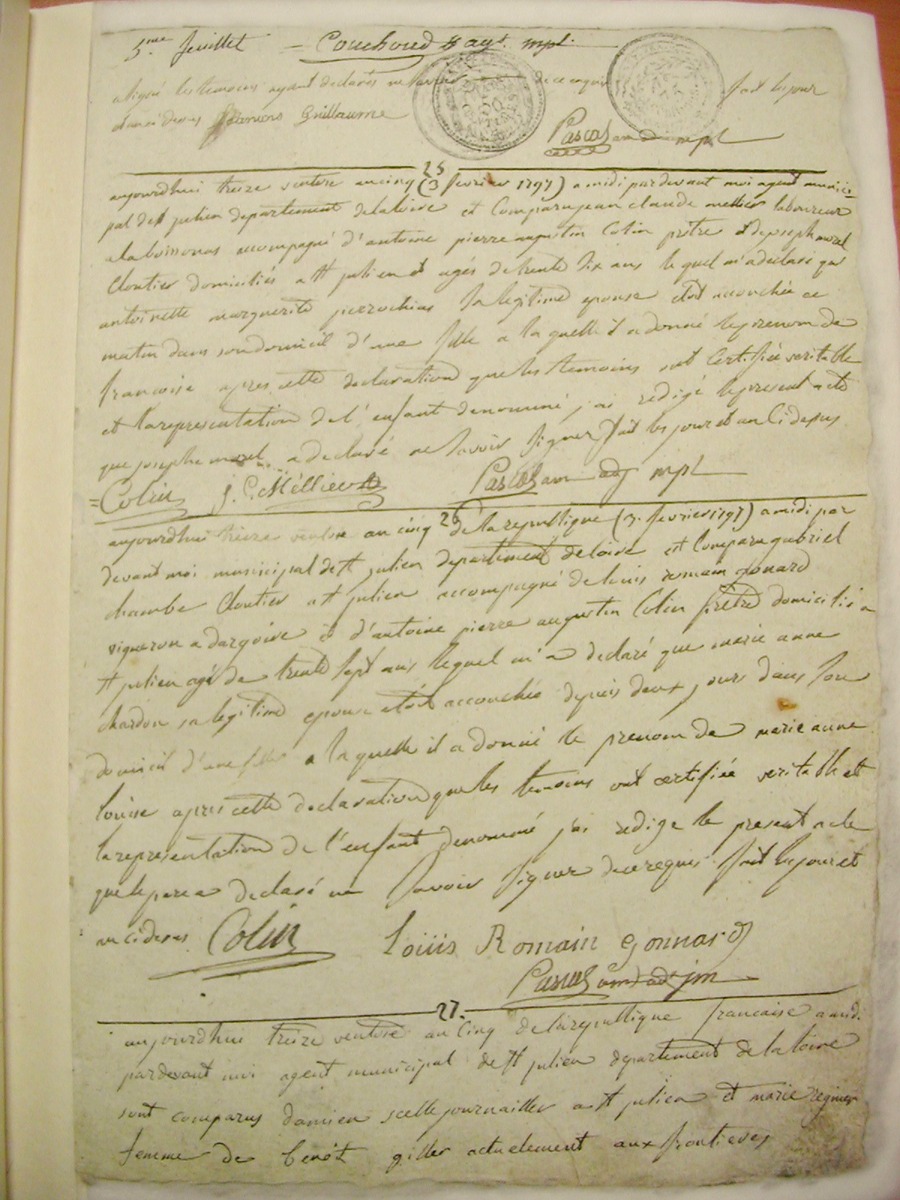 5me feuillet = Couchoud agt mpl
a signé les temoins ayant declarés ne savoir de ce enquis fait les jour
et an ci dessus Guillaume
Pascal am adj mpl
25
aujourdhui treize ventose an cinq (3 fevrier 1797) a midi pardevant moi agent munici
pal de st julien departement de la loire est Comparu jean claude mellier laboureur
a la boissonas accompagné d'antoine pierre augustin Colin prêtre et de joseph morel
Cloutier domiciliés a st julien et agés de trente six ans lequel m'a declaré que
antoinette marguerite pierrochias sa legitime epouse etoit accouchée ce
matin dans son domicil d'une fille a laquelle il a donné le prenom de
francoise apres cette declaration que les temoins ont Certifiée veritable
et la representation de l'enfant denommé j'ai redigé le present acte
que joseph morel a declaré ne savoir signer fait les jour et an Cidessus
Colin J. C. Mellier
Pascal am adj mpl
26
aujourdhui treize ventose an cinq de la republique (3. fevrier 1797) a midi par
devant moi municipal de st julien departement de loire est Comparu gabriel
chambe Cloutier a st julien accompagné de louis romain gonard
vigneron a dargoire et d'antoine pierre augustin Colin prêtre domicilié a
st julien agé de trente sept ans lequel m'a declaré que marie anne
chardon sa legitime epouse etoit accouchée depuis deux jours dans son
domicil d'une fille a laquelle il a donné le prenom de marie anne
louise apres cette declaration que les temoins ont certifiée veritable et
la representation de l'enfant denommé j'ai redigé le present acte
que le pere a declaré ne savoir signer de ce requis fait les jour et
an cidesus Colin Loüis Romain Gonnard
Pascal am adj
27.
aujourdhui treize ventose an cinq de la republique francaise a midi
pardevant moi agent municipal de st julien departement de la loire
sont comparus damien journailler a st julien et marie
femme de benoit actuelement aux frontieres